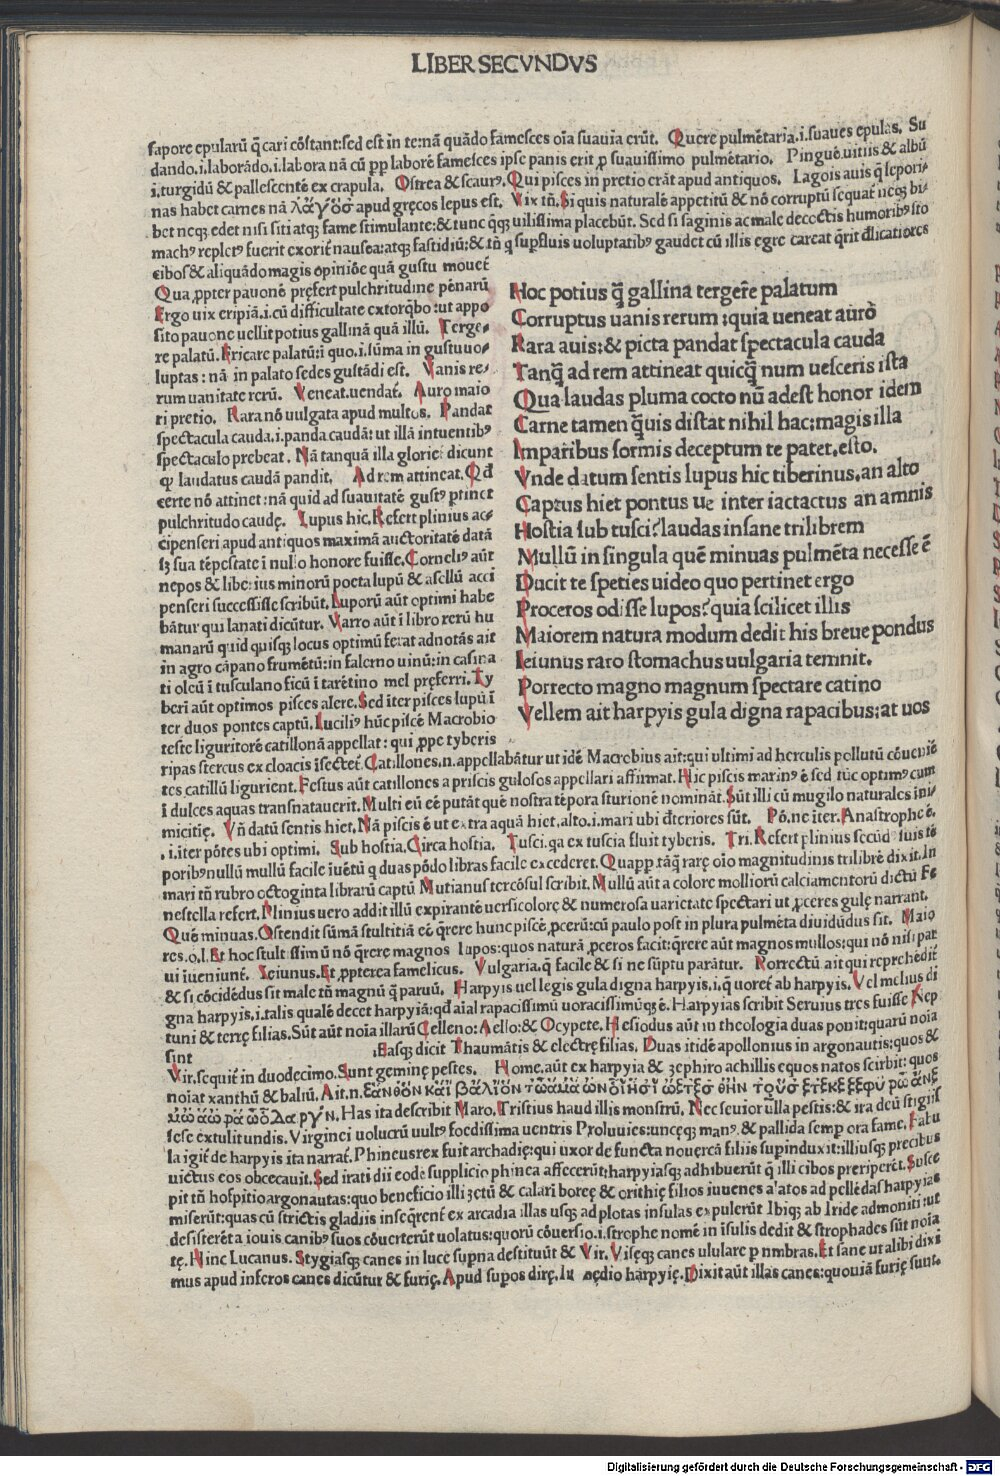 LIBER SECVNDVS
sapore epularū q̄ cari cōstant: sed est in te: nā quādo famesces oīa suauia erūt. Quere pulmētaria .i. suaues epulas. Su
dando .i. laborādo .i. labora nā cū pp laborē famesces ipse panis erit ꝓ suauissimo pulmētario. Pingue uitiis & albū
.i. turgidū & pallescentē ex crapula. Ostrea & scaurꝰ. Qui pisces in pretio erāt apud antiquos. Lagois auis q̄ lepori-
nas habet carnes nā λαγὸσ apud gręcos lepus est. Vix tn̄. Si quis naturalē appetitū & nō corruptū sequat̄ neqȝ bi-
bet neqȝ edet nisi siti atqȝ fame stimulante: & tunc q̄qȝ uilissima placebūt. Sed si saginis ac male decoctis humoribꝰ sto
machꝰ repletꝰ fuerit exorit̄ nausea: atqȝ fastidiū: & tn̄ q supfluis uoluptatibꝰ gaudet cū illis egre careat q̄rit dlicatiores
cibos & aliquādo magis opiniōe quā gustu mouet̄
Qua ꝓpter pauonē pręfert pulchritudine penarū
Ergo uix eripiā .i. cū difficultate extorq̄bo: ut appo
sito pauone uellit potius gallinā quā illū. Terge-
re palatū. Fricare palatū: ī quo .i. sūma in gustu uo-
luptas: nā in palato sedes gustādi est. Vanis re-
rum uanitate rerū. Veneat. uendat̄. Auro maio
ri pretio. Rara nō uulgata apud multos. Pandat
spectacula cauda .i. panda caudā: ut illā intuentibꝰ
spectaculo prebeat. Nā tanquā illa glorie: dicunt
qp laudatus caudā pandit. Ad rem attineat. Qđ
certe nō attinet: nā quid ad suauitatē gustꝰ ptinet
pulchritudo caudę. Lupus hic. Refert plinius ac-
cipenseri apud antiquos maximā auctoritatē datā
sȝ sua tēpestate ī nullo honore fuisse. Corneliꝰ aūt
nepos & liberius minorū poeta lupū & asellū acci
penseri successisse scribūt. Luporū aūt optimi habe
bātur qui lanati dicūtur. Varro aūt ī libro rerū hu
manarū quid quisqȝ locus optimū ferat adnotās ait
in agro cāpano frumētū: in falerno uinū: in casina
ti oleū ī tusculano ficū ī tarētino mel pręferri. Ty
berī aūt optimos pisces alere. Sed iter pisces lupū ī
ter duos pontes captū. Luciliꝰ hūc piscē Macrobio
teste liguritorē catillonā appellat: qui ꝓpe tyberis
Hoc potius q̄ gallina tergere palatum
Corruptus uanis rerum: quia ueneat auro
Rara auis: & picta pandat spectacula cauda
Tanq̄ ad rem attineat quicq̄ num uesceris ista
Qua laudas pluma cocto nū adest honor idem
Carne tamen q̄uis distat nihil hac: magis illa
Imparibus formis deceptum te patet. esto.
Vnde datum sentis lupus hic tiberinus. an alto
Captus hiet pontus ue inter iactactus an amnis
Hostia sub tusci? laudas insane trilibrem
Mullū in singula quē minuas pulmēta necesse ē
Ducit te speties uideo quo pertinet ergo
Proceros odisse lupos? quia scilicet illis
Maiorem natura modum dedit his breue pondus
Ieiunus raro stomachus uulgaria temnit.
Porrecto magno magnum spectare catino
Vellem ait harpyis gula digna rapacibus: at uos
ripas stercus ex cloacis īsectet̄. Catillones .n. appellabātur ut idē Macrobius ait: qui ultimi ad herculis pollutū cōueniē
tes catillū ligurient. Festus aūt catillones a priscis gulosos appellari affirmat. Hic piscis marinꝰ ē sed tūc optimꝰ cum
ī dulces aquas transnatauerit. Multi eū eē putāt quē nostra tēpora sturionē nomināt. Sūt illi cū mugilo naturales ini-
micitię. Vn̄ datū sentis hiet. Nā piscis ē ut extra aquā hiet. alto .i. mari ubi dteriores sūt. Pō. ne iter. Anastrophe ē.
.i. iter pōtes ubi optimi. Sub hostia. Circa hostia. Tusci. qa ex tuscia fluit tyberis. Tri. Refert plinius secūdꝰ suis tē
poribꝰ nullū mullū facile iuētū q duas pōdo libras facile excederet. Quapp. tāq̄ rarę oīo magnitudinis trilibrē dixit. In
mari tn̄ rubro octoginta librarū captū Mutianus tercōsul scribit. Mullū aūt a colore molliorū calciamentorū dictū Fe
nestella refert. Plinius uero addit illū expirantē uersicolorē & numerosa uarietate spectari ut ꝓceres gulę narrant.
Quē minuas. Ostendit sūmā stultitiā eē q̄rere hunc piscē ꝓcerū: cū paulo post in plura pulmēta diuidūdus sit. Maio
res. o. l. Et hoc stultissimū nō q̄rere magnos lupos: quos naturā ꝓceros facit: q̄rere aūt magnos mullos: qui nō nisi par
ui iueniunt̄. Ieiunus. Et ꝓpterea famelicus. Vulgaria. q̄ facile & si ne sūptu parātur. Porrectū ait qui reprehēdit
& si cōcidēdus sit male tn̄ magnū q̄ paruū. Harpyis uel legis gula digna harpyis .i. q̄ uoret̄ ab harpyis. Vel melius di
gna harpyis .i. talis qualē decet harpyiā: qđ aial rapacissimū uoracissimūqȝ ē. Harpyias scribit Seruius tres fuisse Nep
tuni & terrę filias. Sūt aūt noīa illarū Celleno: Aello: & Ocypete. Hesiodus aūt in theologia duas ponit: quarū noīa
sint Easqȝ dicit Thaumātis & electrę filias. Duas itidē apollonius in argonautis: quos &
Vir. sequit̄ in duodecimo. Sunt geminę pestes. Home. aūt ex harpyia & zephiro achillis equos natos scirbit: quos
noiat xanthū & baliū. Ait .n.
Has ita describit Maro. Tristius haud illis monstrū. Nec seuior ulla pestis: & ira deū stigiis
sese extulit undis. Virginei uolucrū uultꝰ foedissima uentris Proluuies: unceqȝ manꝰ. & pallida semp ora fame. Fabu
la igit̄ de harpyis ita narrat̄. Phineus rex fuit archadię: qui uxor de functa nouercā filiis supinduxit: illiusqȝ precibus
uictus eos obcecauit. Sed irati dii eodē supplicio phinea affecerūt: harpyiasqȝ adhibuerūt q̄ illi cibos preriperēt. Susce
pit tn̄ hospitio argonautas: quo beneficio illi zetū & calaī boreę & orithię filios iuuenes a'atos ad pellēdas harpyias
miserūt: quas cū strictis gladiis inseq̄rent̄ ex arcadia illas usqȝ ad plotas insulas expulerūt Ibiqȝ ab Iride admoniti: ut
desisterēt a iouis canibꝰ suos cōuerterūt uolatus: quorū cōuersio .i. strophe nomē in īsulis dedit & strophades sūt noīa
tę. Hinc Lucanus. Stygiasqȝ canes in luce supna destituūt & Vir. Viseqȝ canes ululare p nmbras. Et sane ut alibi dixi
mus apud inferos canes dicūtur & furię. Apud supos dirę. In medio harpyię. Dixit aūt illas canes: quoniā furię sunt.
Digitalisierung gefördert durch die Deutsche Forschungsgemeinschaft - DFG